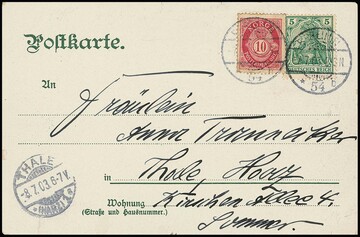 Postkarte.
NORGE
10
5
DEUTSCHES REICH
54
54 b
An
Fräulein
Anna Trannacker
Thale, Harz
THALE
-8.7.03.6-7V.
Wohnung
Kirchen Allee 4.
(Straße und Hausnummer.)
Sommer.